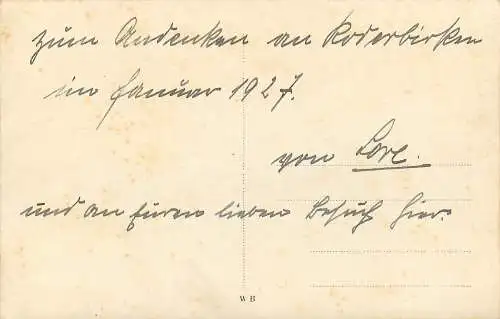 zum Andenken an Roderbirken
im Januar 1927.
von Lore.
und an Euren lieben Besuch hier.
W B